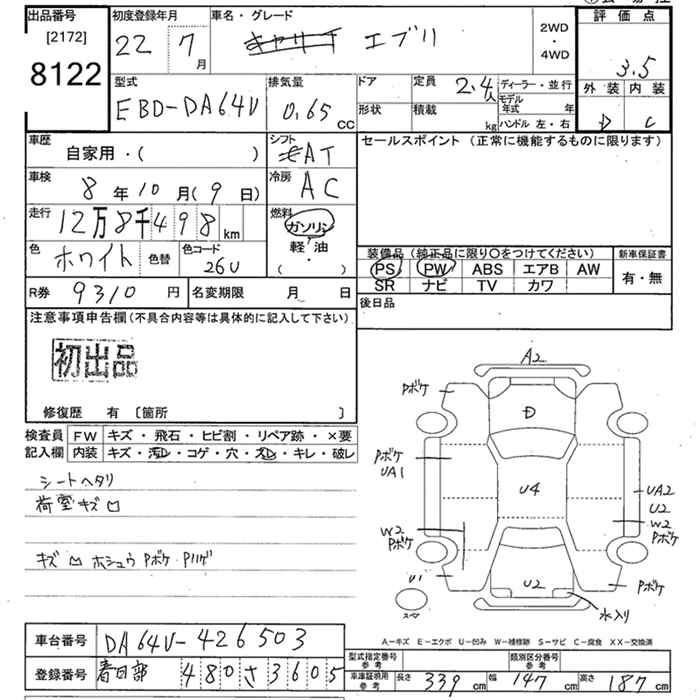 出品番号
[2172]
8122
初度登録年月
22 7月
車名・グレード
エブリ
2WD
・
4WD
評価点
3.5
外装 内装
D C
型式
EBD-DA64V
排気量
0.65 CC
ドア
定員 2.4人
形状
積載 kg
ディーラー・並行
モデル年式 年
ハンドル 左・右
車歴
自家用・( )
シフト
AT
セールスポイント (正常に機能するものに限ります)
車検
8年10月(9日)
冷房
AC
走行
12万8千498km
燃料
ガソリン
・
軽油
・
( )
色
ホワイト
色替
色コード
26U
装備品 (純正品に限り〇をつけてください)
PS PW ABS エアB AW
SR ナビ TV カワ
新車保証書
有・無
R券 9310円
名変期限 月 日
後日品
注意事項申告欄(不具合内容等は具体的に記入して下さい)
初出品
修復歴 有 〔箇所 〕
検査員記入欄
FW キズ・飛石・ヒビ割・リペア跡・×要
内装 キズ・汚レ・コゲ・穴・スレ・キレ・破レ
シートヘタリ
荷室キズ凹
キズ凹ホシュウPボケ・Pハゲ
A2
Pボケ
D
Pボケ
Pボケ
UA1
U4
UA2
U2
W2
Pボケ
W2
Pボケ
U1
U2
Pボケ
水入り
スペア
A-キズ E-エクボ U-凹み W-補修跡 S-サビ C-腐食 XX-交換済
車台番号 DA64V-426503
登録番号 春日部 480さ3605
型式指定番号
参考
類別区分番号
参考
車庫証明用
参考
長さ 339cm 幅 147cm 高さ 187cm